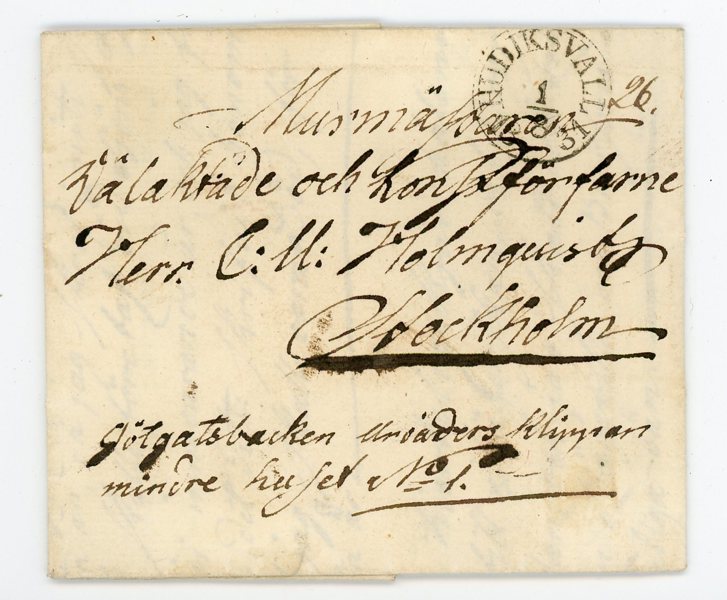 HUDIKSVALL
1
8
31
26.
Murmästaren
Välaktade och konstförfarne
Herr C: M: Holmquist
Stockholm
Gölgatsbacken klippan
mindre huset No 1.